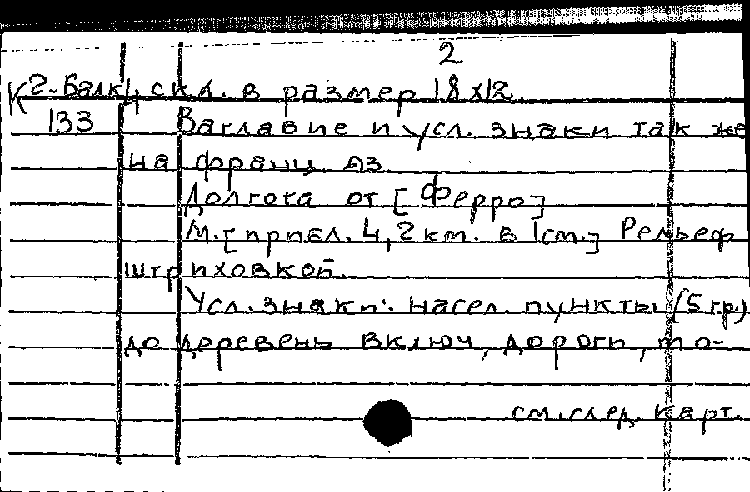 2
К 2-Балк, скл. в размер 18х12
133 Заглавие и усл. знаки так же
на франц. яз.
Долгота от [Ферро]
М. [прибл. 4,2 км. в 1 см.] Рельеф
штриховкой.
Усл. знаки: насел. пункты (5 гр.)
до деревень включ, дороги, то-
см. след. карт.